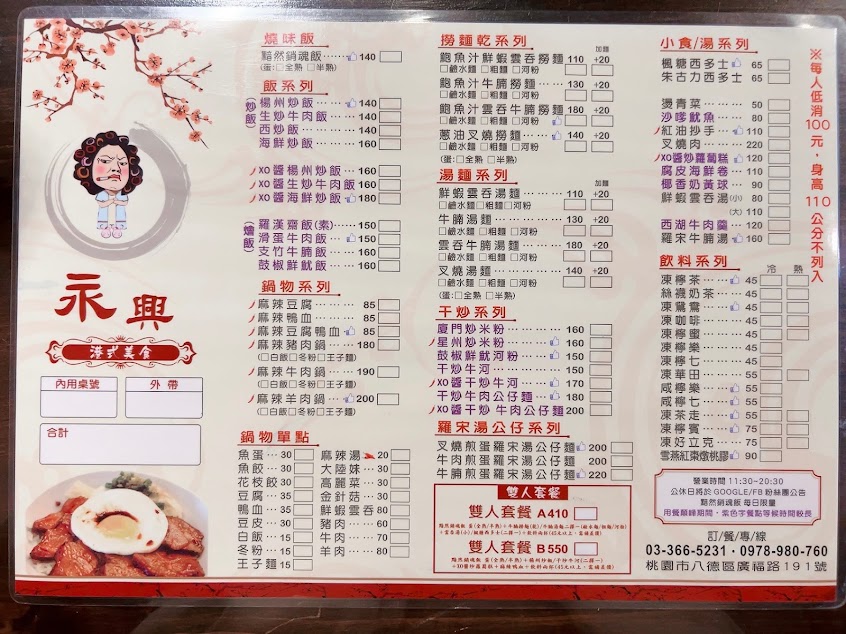 永興
港式美食
內用桌號 外帶
合計
燒味飯
黯然銷魂飯 140
(蛋:□全熟 □半熟)
飯系列
(炒飯)
楊州炒飯 140
生炒牛肉飯 140
西炒飯 140
海鮮炒飯 160
XO醬楊州炒飯 160
XO醬生炒牛肉飯 160
XO醬海鮮炒飯 180
(燴飯)
羅漢齋飯(素) 150
滑蛋牛肉飯 150
支竹牛腩飯 160
豉椒鮮魷飯 160
鍋物系列
麻辣豆腐 85
麻辣鴨血 85
麻辣豆腐鴨血 85
麻辣豬肉鍋 180
(□白飯□冬粉□王子麵)
麻辣牛肉鍋 190
(□白飯□冬粉□王子麵)
麻辣羊肉鍋 200
(□白飯□冬粉□王子麵)
鍋物單點
魚蛋 30 麻辣湯 20
魚餃 30 大陸妹 30
花枝餃 30 高麗菜 30
豆腐 35 金針菇 30
鴨血 35 鮮蝦雲吞 80
豆皮 30 豬肉 60
白飯 15 牛肉 70
冬粉 15 羊肉 80
王子麵 15
撈麵乾系列
加麵
鮑魚汁鮮蝦雲吞撈麵 110 +20
□鹼水麵 □粗麵 □河粉
鮑魚汁牛腩撈麵 130 +20
□鹼水麵 □粗麵 □河粉
鮑魚汁雲吞牛腩撈麵 180 +20
□鹼水麵 □粗麵 □河粉
蔥油叉燒撈麵 140 +20
□鹼水麵 □粗麵 □河粉
(蛋:□全熟 □半熟)
湯麵系列
加麵
鮮蝦雲吞湯麵 110 +20
□鹼水麵□粗麵□河粉
牛腩湯麵 130 +20
□鹼水麵 □粗麵 □河粉
雲吞牛腩湯麵 180 +20
□鹼水麵 □粗麵 □河粉
叉燒湯麵 140 +20
□鹼水麵 □粗麵 □河粉
(蛋:□全熟 □半熟)
干炒系列
廈門炒米粉 160
星州炒米粉 160
豉椒鮮魷河粉 160
干炒牛河 150
XO醬干炒牛河 170
干炒牛肉公仔麵 180
XO醬干炒牛肉公仔麵 200
羅宋湯公仔系列
叉燒煎蛋羅宋湯公仔麵 200
牛肉煎蛋羅宋湯公仔麵 200
牛腩煎蛋羅宋湯公仔麵 220
雙人套餐
雙人套餐 A410
雙人套餐 B550
小食/湯系列
楓糖西多士 65
朱古力西多士 65
燙青菜 50
沙嗲魷魚 80
紅油抄手 110
叉燒肉 220
XO醬炒蘿蔔糕 120
腐皮海鮮卷 110
椰香奶黃球 90
鮮蝦雲吞湯(小) 80
(大) 110
西湖牛肉羹 120
羅宋牛腩湯 160
飲料系列
冷 熱
凍檸茶 45
絲襪奶茶 45
凍鴛鴦 45
凍咖啡 45
凍檸蜜 45
凍檸樂 45
凍檸七 45
凍華田 55
咸檸樂 55
咸檸七 55
凍茶走 55
凍檸賓 75
凍好立克 75
雪燕紅棗燉桃膠 90
※每人低消100元,身高110公分不列入
營業時間 11:30~20:30
公休日將於 GOOGLE/FB 粉絲團公告
黯然銷魂飯 每日限量
用餐顛峰期間,紫色字餐點等候時間較長
訂/餐/專/線
03-366-5231・0978-980-760
桃園市八德區廣福路191號